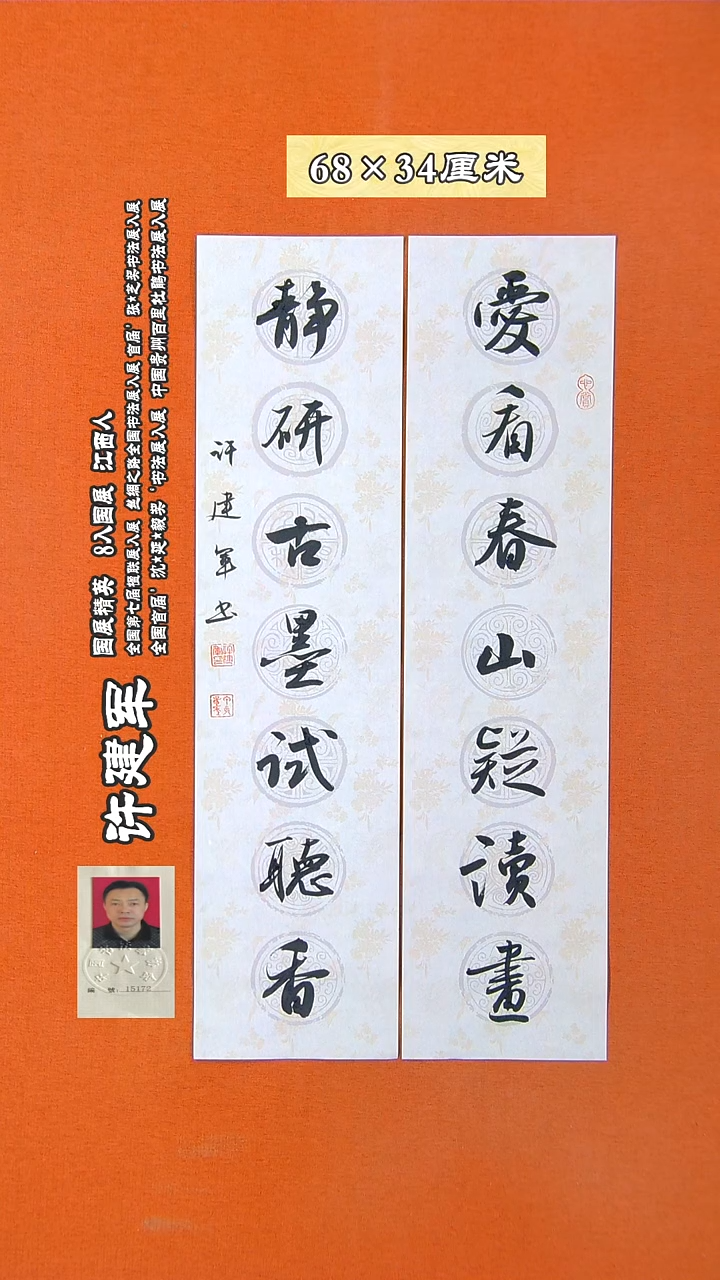 68×34厘米
愛看春山疑讀畫
静研古墨試聽香
许建军书
国展精英 8入国展 江西人
全国第七届楹联展入展 丝绸之路全国书法展入展 首届'张*芝奖书法展入展
全国首届'沈*延*毅奖'书法展入展 中国贵州百里杜鹃书法展入展
许建军
15172